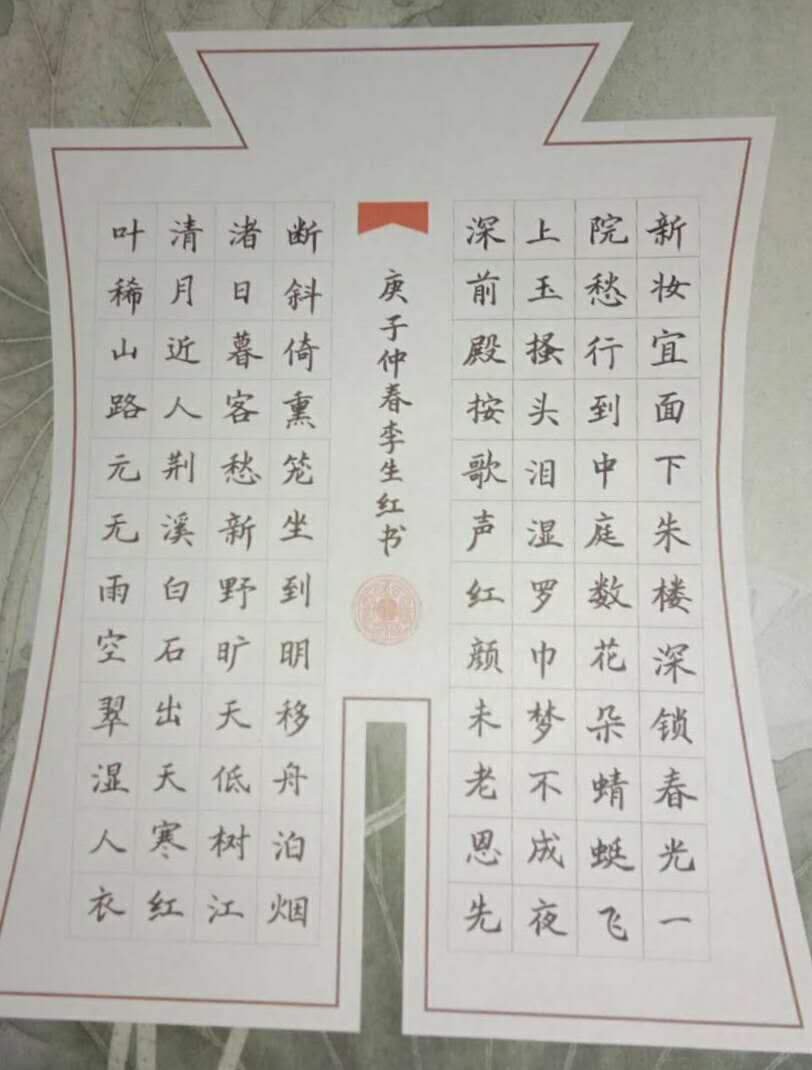 新妆宜面下朱楼深锁春光一
院愁行到中庭数花朵蜻蜓飞
上玉搔头泪湿罗巾梦不成夜
深前殿按歌声红颜未老恩先
断斜倚熏笼坐到明移舟泊烟
渚日暮客愁新野旷天低树江
清月近人荆溪白石出天寒红
叶稀山路元无雨空翠湿人衣
庚子仲春李生红书